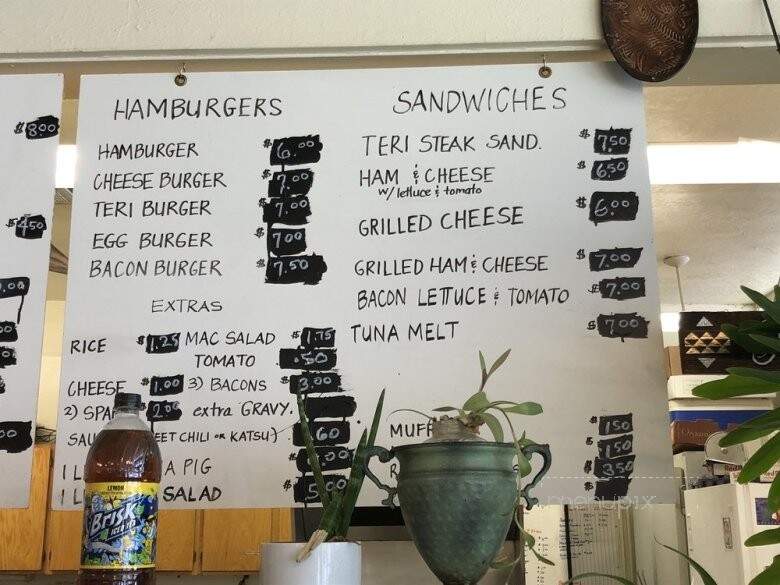 $8.00
$4.50
HAMBURGERS
HAMBURGER $6.00
CHEESE BURGER $7.00
TERI BURGER $7.00
EGG BURGER $7.00
BACON BURGER $7.50
EXTRAS
RICE $1.25 MAC SALAD $1.75
TOMATO .50
CHEESE $1.00 3) BACONS $3.00
2) SPA $2.00 extra GRAVY.
SAU EET CHILI OR KATSU) .60
A PIG
SALAD $5.00
SANDWICHES
TERI STEAK SAND. $7.50
HAM & CHEESE $6.50
W/ lettuce & tomato
GRILLED CHEESE $6.00
GRILLED HAM & CHEESE $7.00
BACON LETTUCE & TOMATO $7.00
TUNA MELT $7.00
MUFF $1.50
$1.50
$3.50
LEMON
Brisk
iced tea
menupix